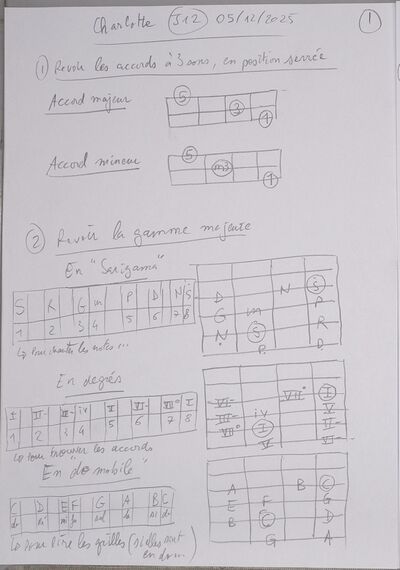 Charlotte J12 05/12/2025 1
1 Revoir les accords à 3 sons, en position serrée
Accord majeur
5
3
1
Accord mineur
5
m3
1
2 Revoir la gamme majeure
En "Sarigama"
S R G m P D N Ṡ
1 2 3 4 5 6 7 8
↳ Pour chanter les notes...
N Ṡ
D P
G m R
Ṇ S
P D
En degrés
I II- III- IV V VI- VII° I
1 2 3 4 5 6 7 8
↳ Pour trouver les accords
VI- VII° I
III- IV V
VII° I II-
VI-
En "do mobile"
C D E F G A B C
do ré mi fa sol la si do
↳ Pour lire les grilles (si elles sont
en do...)
A B C
E F G
B C D
G A